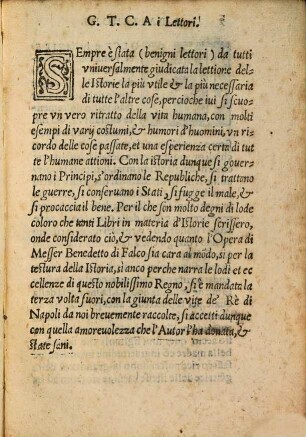 G. T. C. A i Lettori.
SEmpre è stata (benigni lettori) da tutti
vniuersalmente giudicata la lettione del-
le Istorie la più vtile & la più necessaria
di tutte l'altre cose, percioche iui si scuo-
pre vn vero ritratto della vita humana, con molti
esempi di varij costumi, & humori d'huomini, vn ri-
cordo delle cose passate, et una esperienza certa di tut
te l'humane attioni. Con la istoria dunque si gouer-
nano i Principi, s'ordinano le Republiche, si trattano
le guerre, si conseruano i Stati, si fugge il male, &
si procaccia il bene. Per il che son molto degni di lode
coloro che tanti Libri in materia d'Istorie scrissero,
onde considerato ciò, & vedendo quanto l'Opera di
Messer Benedetto di Falco sia cara al mōdo, si per la
testura della Istoria, si anco perche narra le lodi et ec
cellenze di questo nobilissimo Regno, si è mandata la
terza volta fuori, con la giunta delle vite de' Rè di
Napoli da noi breuemente raccolte, si accetti dunque
con quella amoreuolezza che l'Autor l'ha donata, &
state sani.